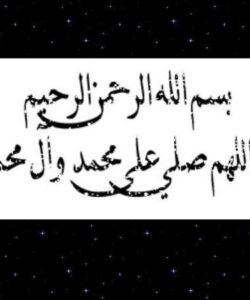 بسم الله الرحمن الرحيم
اللهم صلي على محمد وآل محمد